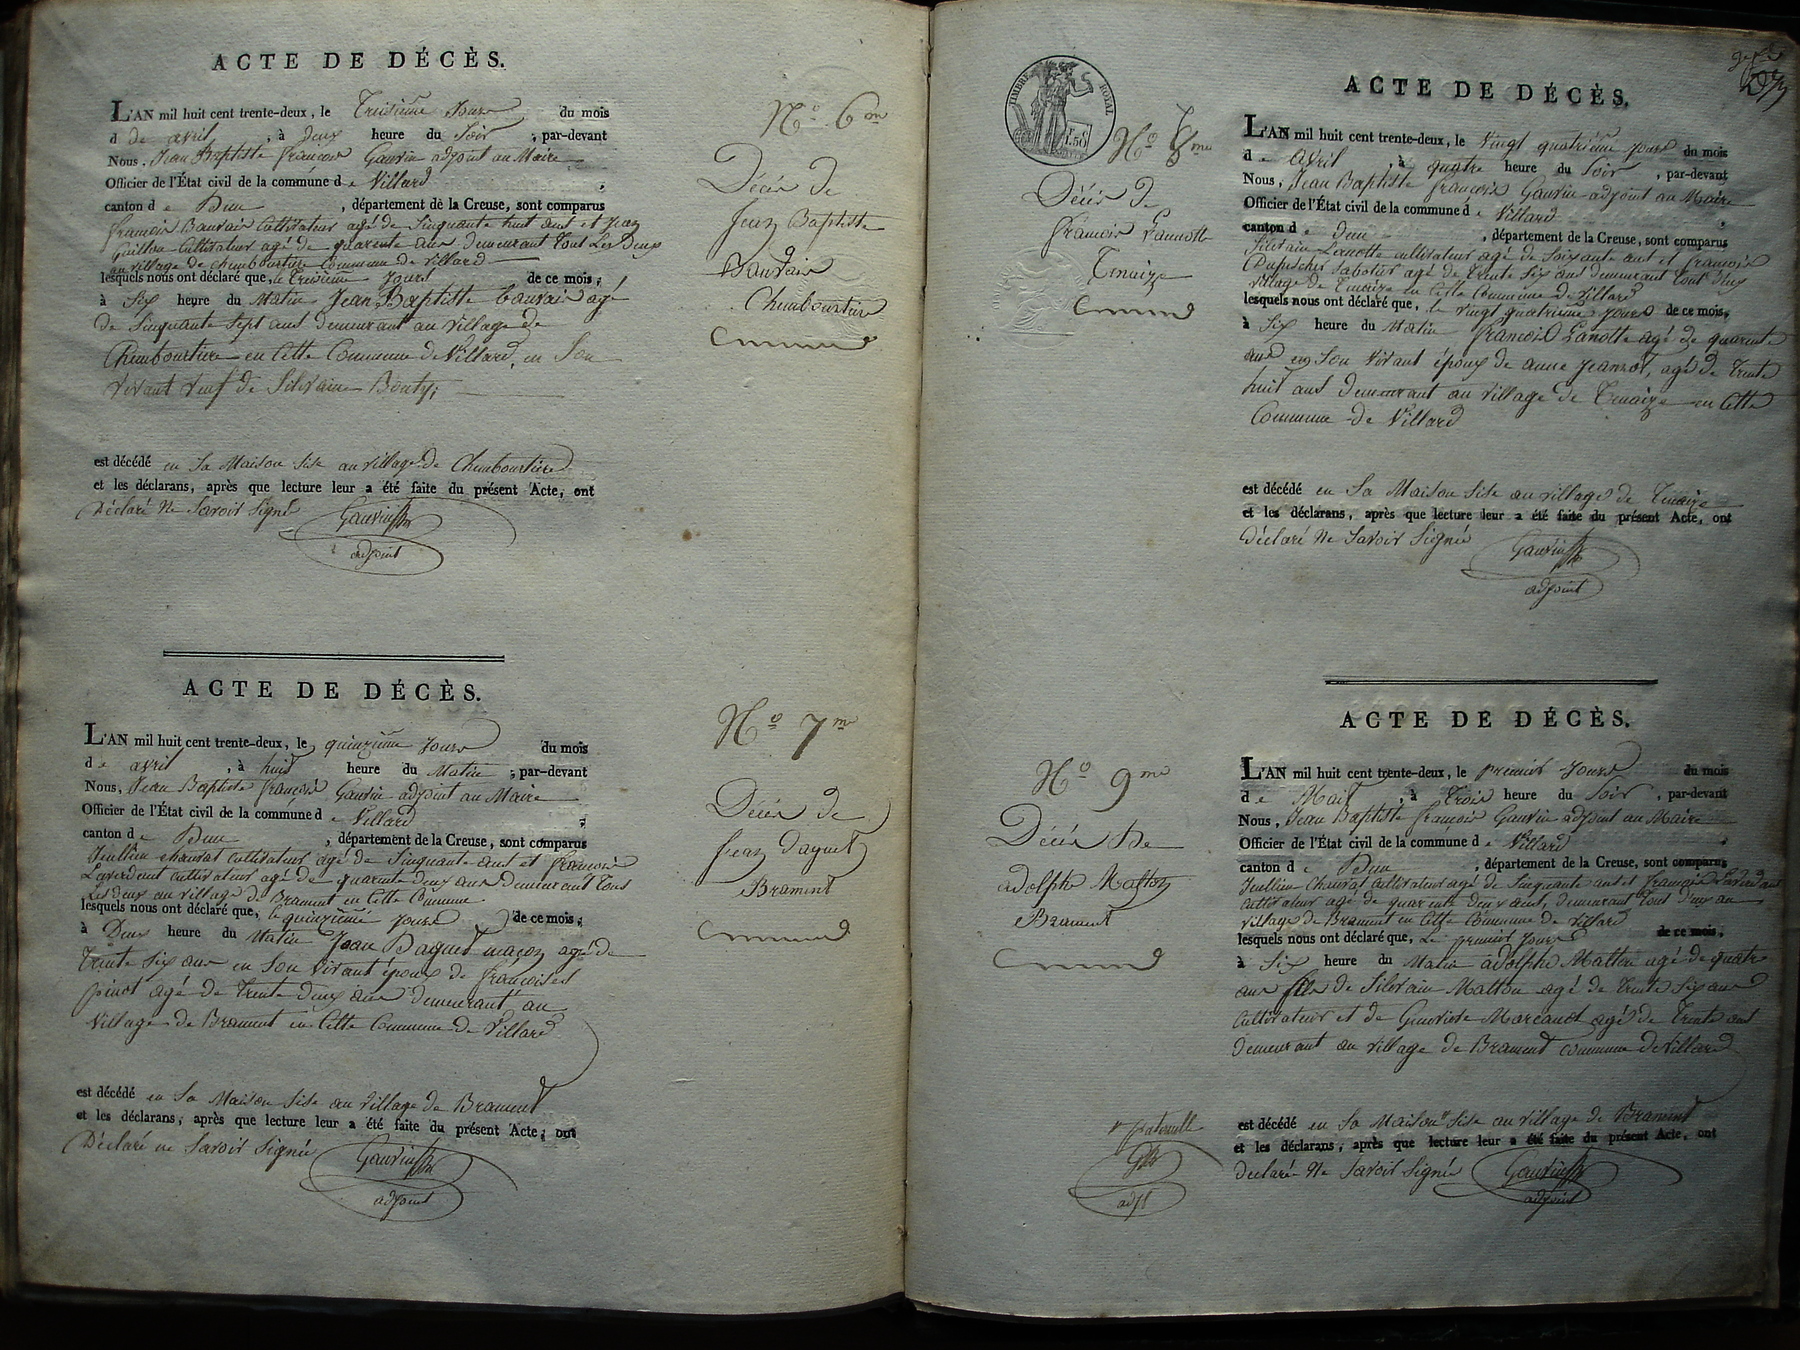 ACTE DE DÉCÈS.
L'AN mil huit cent trente-deux, le Treisième Jours du mois
d de avril, à Deux heure du Soir, par-devant
Nous, Jean Baptiste françois Gauvin adjoint au Maire
Officier de l'État civil de la commune d e Villard
canton d e Dun, département de la Creuse, sont comparus
françois Bauvais Cultivateur agé de Sinquante huit ans et Jean
Cultivateur agé de quarente ans demeurant tout Les Deux
au village de Chimbourtière Commune de villard
lesquels nous ont déclaré que, le Treisième Jours de ce mois,
à Six heure du Matin Jean Baptiste bauvais agé
de Sinquante Sept ans demeurant au village de
Chimbourtière en Cette Commune de Villard, en Son
vivant veuf de Silvaine Bouty;
est décédé en Sa Maison Sise au village de Chimbourtière
et les déclarans, après que lecture leur a été faite du présent Acte, ont
Déclaré Ne Savoir Signé
Gauvin
adjoint
No. 6me
Décès de
Jean Baptiste
Bauvais
Chimbourtière
ACTE DE DÉCÈS.
L'AN mil huit cent trente-deux, le quinzième Jours du mois
d e avril, à huit heure du Matin, par-devant
Nous, Jean Baptiste françois Gauvin adjoint au Maire
Officier de l'État civil de la commune d e Villard
canton d e Dun, département de la Creuse, sont comparus
Jeullien chauvat Cultivateur agé de Sinquante ans et françois
Laverdant Cultivateur agé de quarente deux ans demeurant tous
Les deux au village de Brament en Cette Commune
lesquels nous ont déclaré que, le quinzième Jours de ce mois,
à Deux heure du Matin Jean Daguet maçon agé de
Trente Six ans en Son Vivant époux de françoise
pinot agé de Trente deux ans demeurant au
Village de Brament en Cette Commune de Villard
est décédé en Sa Maison Sise au village de Brament
et les déclarans, après que lecture leur a été faite du présent Acte, ont
Déclaré ne Savoir Signée
Gauvin
adjoint
No. 7me
Décès de
Jean Daguet
Brament
TIMBRE ROYAL
No 8me
Décès de
francois Lanotte
Tenaize
ACTE DE DÉCÈS.
L'AN mil huit cent trente-deux, le vingt quatrième Jours du mois
d e Avril, à quatre heure du Soir, par-devant
Nous, Jean Baptiste françois Gauvin adjoint au Maire
Officier de l'État civil de la commune d e Villard
canton d e Dun, département de la Creuse, sont comparus
Silvain Lanotte cultivateur agé de Soixante ans et françois
Sabotier agé de Trente Six ans demeurant tout deux
village de Tenaize en Cette Commune de Villard
lesquels nous ont déclaré que, le vingt quatrième Jours de ce mois,
à Six heure du Matin françois Lanotte agé de quarente
ans en Son vivant époux de anne Jeanrot, agé de Trente
huit ans demeurant au village de Tenaize en Cette
Commune de Villard
est décédé en Sa Maison Sise au village de Tenaize
et les déclarans, après que lecture leur a été faite du présent Acte, ont
Déclaré Ne Savoir Signée
Gauvin
adjoint
No 9me
Décès De
adolphe Matton
Brament
ACTE DE DÉCÈS.
L'AN mil huit cent trente-deux, le premier Jours du mois
d e Mais, à Trois heure du Soir, par-devant
Nous, Jean Baptiste françois Gauvin adjoint au Maire
Officier de l'État civil de la commune d e Villard
canton d e Dun, département de la Creuse, sont comparus
Jeullien Chauvat Cultivateur agé de Sinquante ans et françois Laverdant
Cultivateur agé de quarente deux ans, demeurant tout deux au
village de Brament en Cette Commune de Villard
lesquels nous ont déclaré que, Le premier Jours de ce mois,
à Six heure du Matin adolphe Matton agé de quatre
ans fils de Silvain Matton agé de Trente Six ans
Cultivateur et de Genviève Marcaud agé de Trente ans
demeurant au village de Brament commune de Villard
est décédé en Sa Maison Sise au village de Brament
et les déclarans, après que lecture leur a été faite du présent Acte, ont
declaré Ne Savoir Signée
Gauvin
adjoint